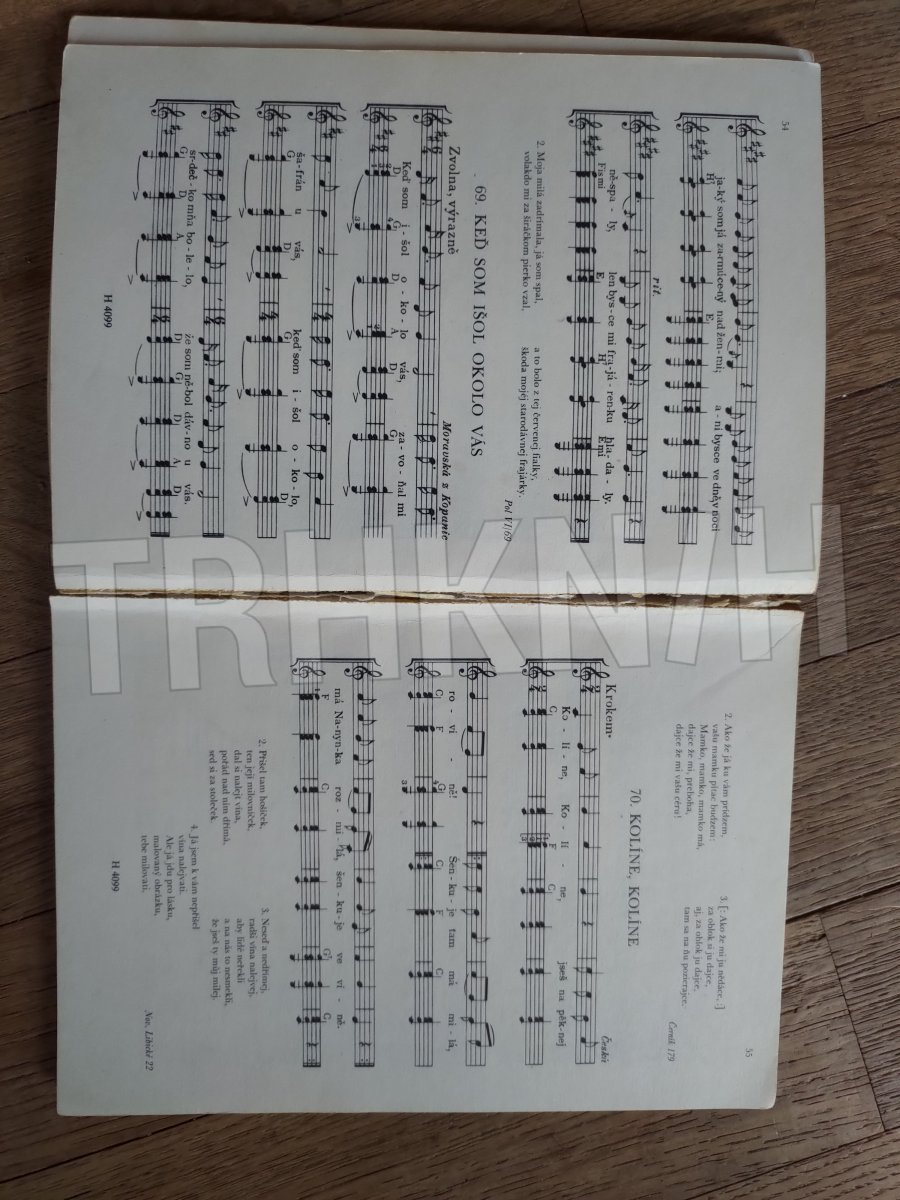 54
ja-ký som já za-rmúce-ný nad žen-mi; a-ni bysce ve dněv noci
H⁷ E₁
rit.
ně-spa-ly, len bys-ce mi fra-já-ren-ku hla-da-ly.
Fis mi E₁ H⁷ E mi
2. Moja milá zadrímala, já som spal,
volakdo mi za širáčkom pierko vzal,
a to bolo z tej červenej fialky,
škoda mojéj starodávnej frajárky.
Pol VI/69
69. KEĎ SOM IŠOL OKOLO VÁS
Zvolna, výrazně
Moravská z Kopanic
Keď som i-šol o-ko-lo vás, za-vo-ňal mi
D₁ G₁ D₁ A₁ D₁ G₁
ša-frán u vás, keď som i-šol o-ko-lo,
G₁ D₁ D₁
sr-deč-ko mňa bo-le-lo, že som ně-bol dáv-no u vás.
G₁ A₁ D₁ G₁ D₁ A₁ D₁
H 4099
55
2. Ako že já ku vám prídzem,
vašu mamku pítac budzem:
Mamko, mamko, mamko má,
dajce že mi, preboha,
dajce že mi vašu céru!
3. [: Ako že mi ju nědáce, :]
za oblok si ju dajce,
aj, za oblok ju dajce,
tam sa na ňu pozierajce.
Černík 179
70. KOLÍNE, KOLÍNE
Krokem
Česká
Ko-lí-ne, Ko-lí-ne, jseš na pěk-nej
C₁ F C₁
ro-vi-ně! Šen-ku-je tam má mi-lá,
C₁ F G₁ C₁ F C₁
má Na-nyn-ka roz-mi-lá, šen-ku-je ve ví-ně.
F C₁ G⁷ C₁
2. Přišel tam hošíček,
ten její milovníček,
dal si nalejt vína,
pořád nad ním dřímá,
sed si za stoleček.
3. Neseď a nedřímej,
radši vína nalejvej,
aby lidé neřekli
a na nás to nesmekli,
že jseš ty můj milej.
4. Já jsem k vám nepřišel
vína nalejvati,
Ale já jdu pro lásku,
malovaný obrázku,
tebe milovati.
Nov. Libické 22
H 4099
TRHKNIH